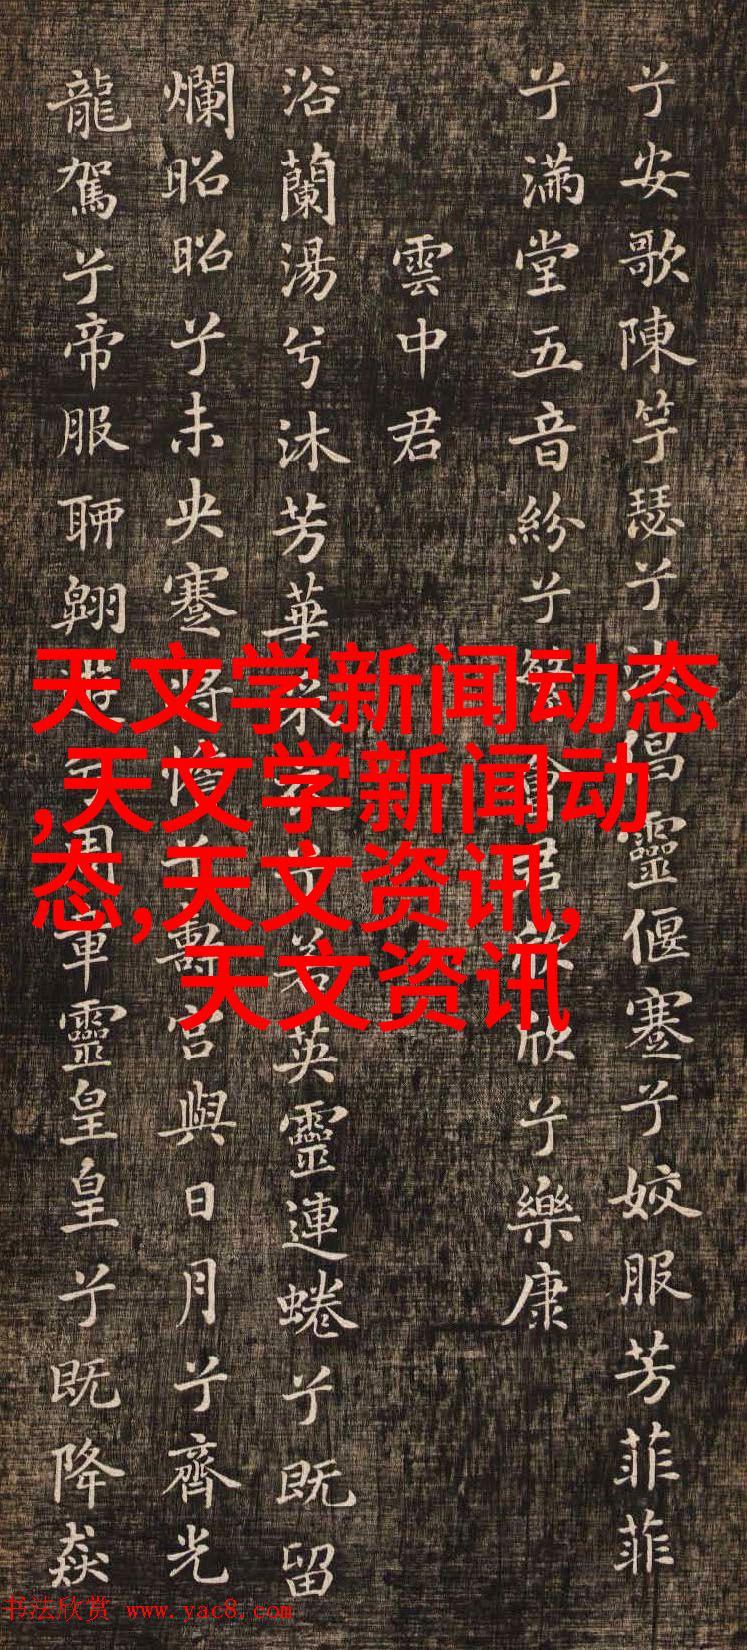 兮安歌陳竽瑟兮浩倡靈偃蹇兮姣服芳菲菲
兮滿堂五音紛兮繁會君欣欣兮樂康
雲中君
浴蘭湯兮沐芳華采衣兮若英靈連蜷兮既留
爛昭昭兮未央蹇將憺兮壽宮與日月兮齊光
龍駕兮帝服聊翱遊兮周章靈皇皇兮既降猋
天文学新闻动态
,天文学新闻动
态,天文资讯,
天文资讯
书法欣赏 www.yac8.com